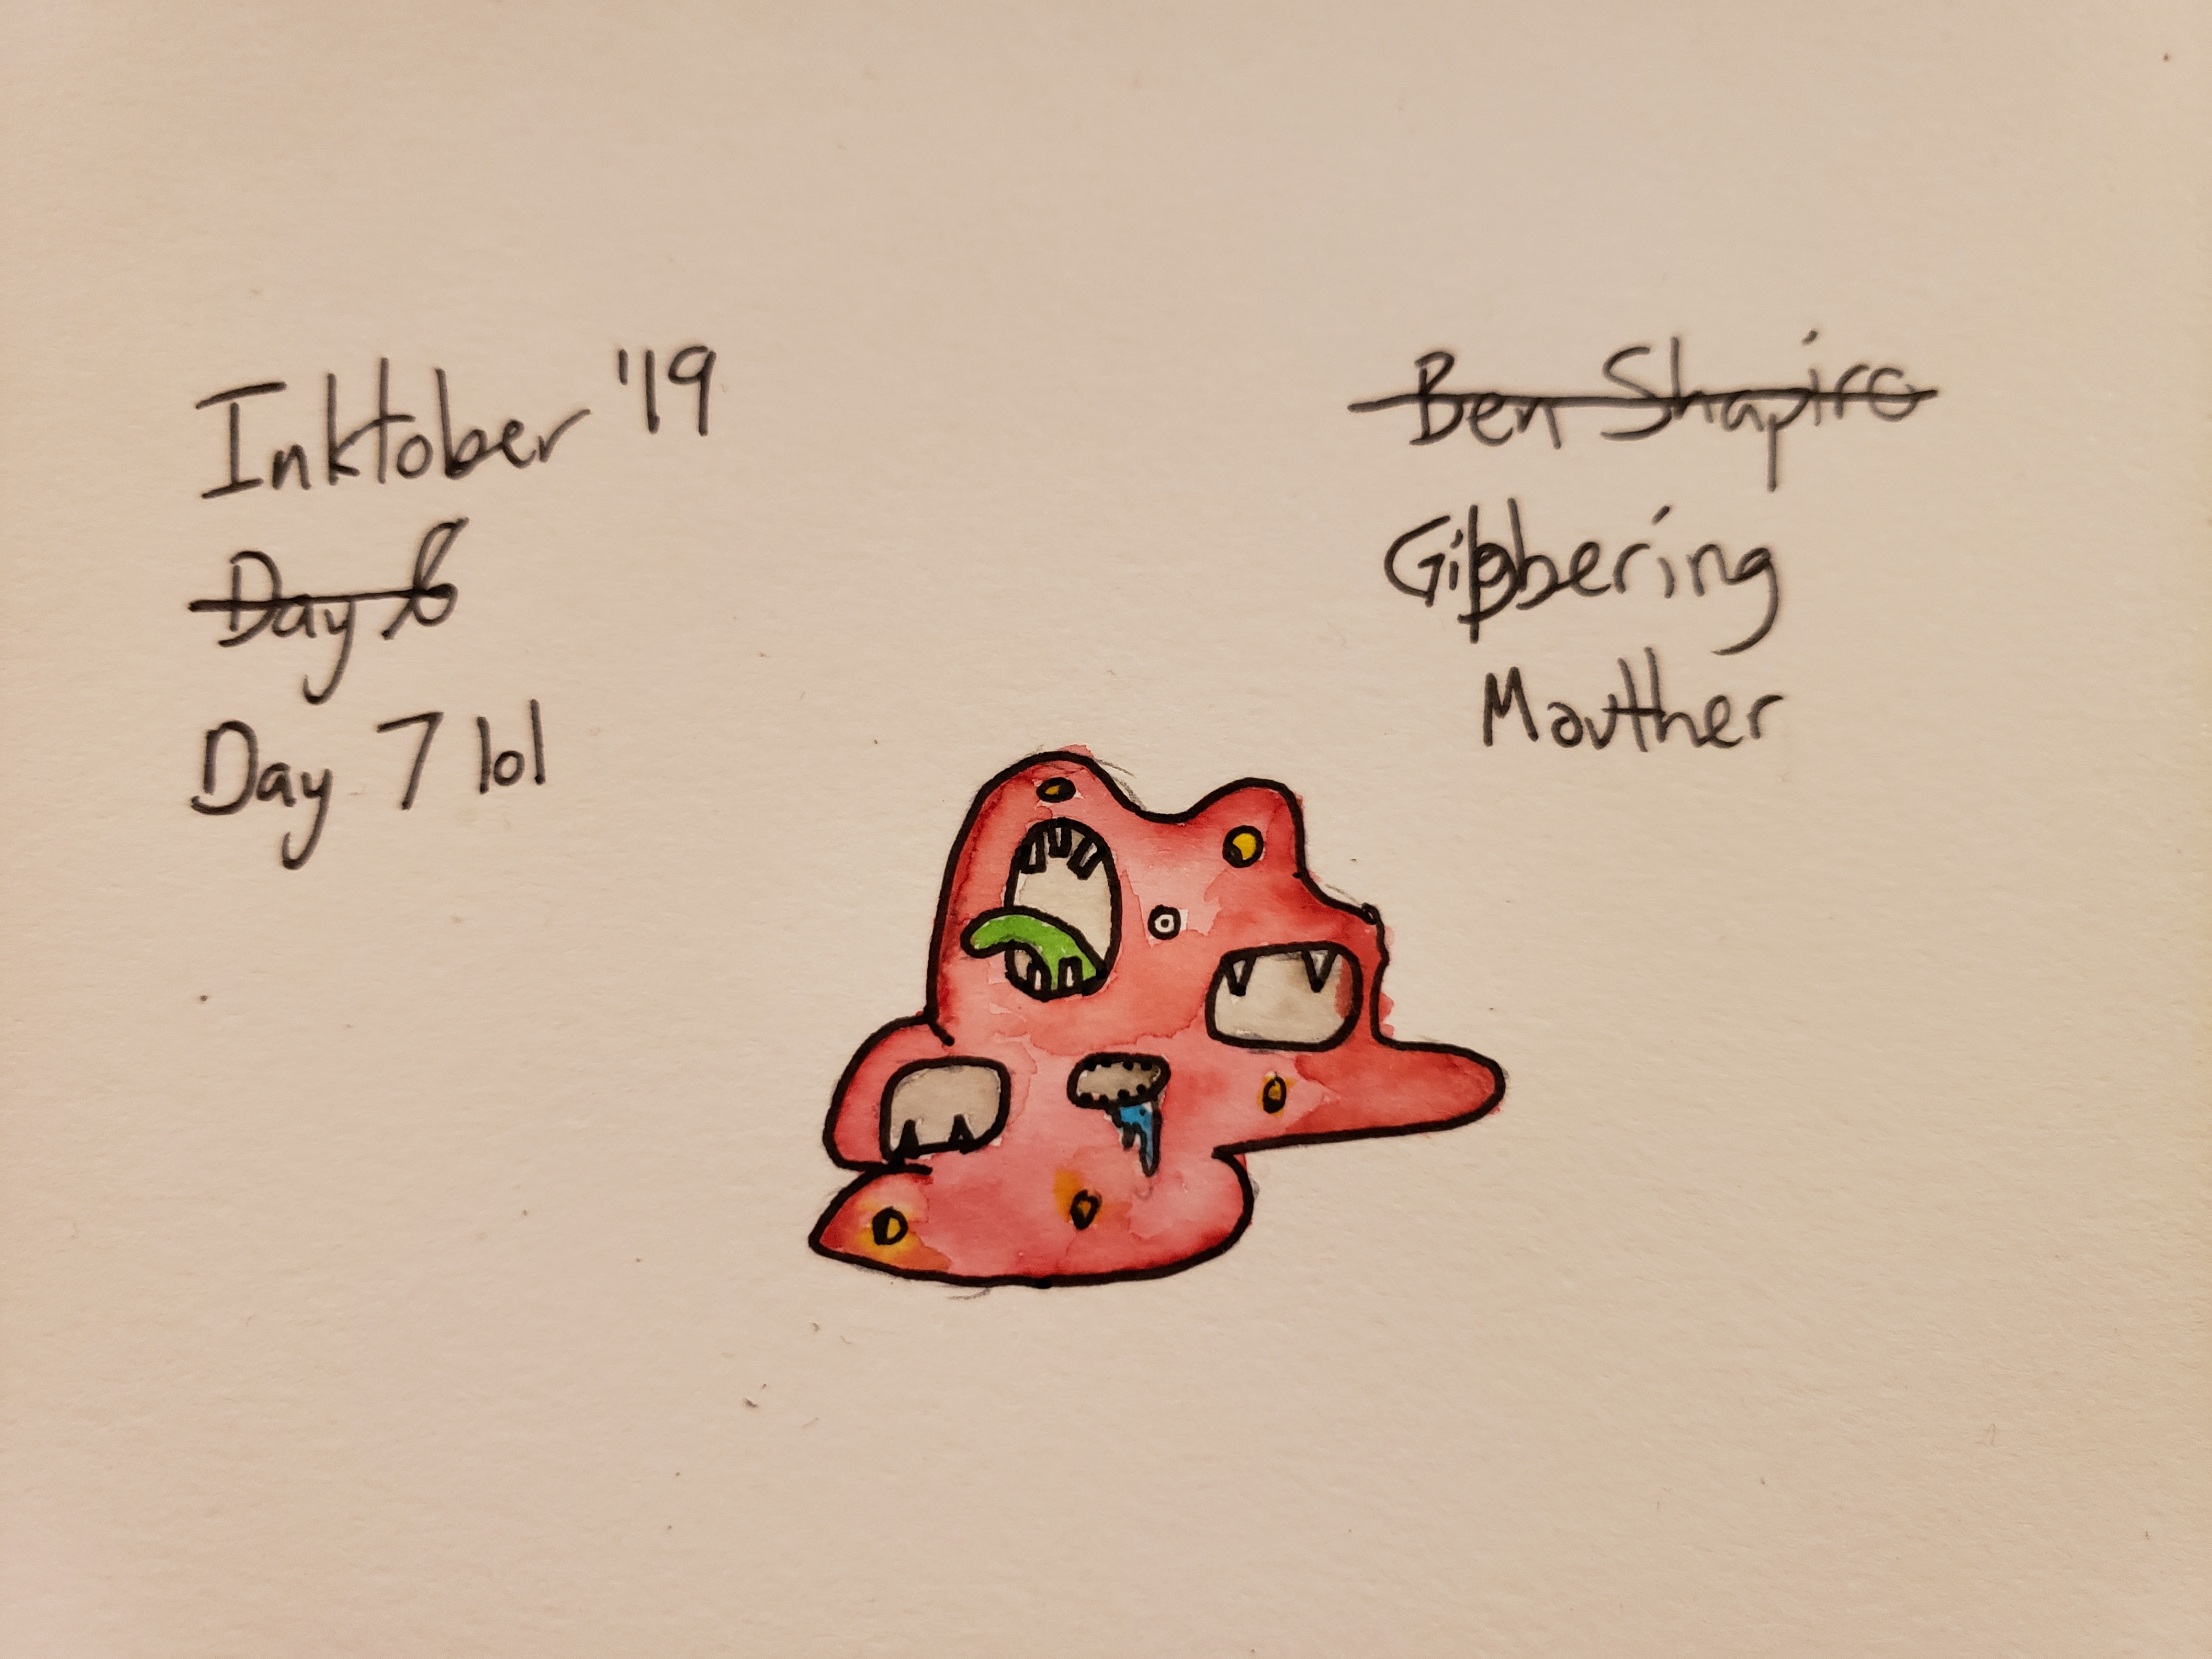 Inktober '19
Day 6
Day 7 lol
Ben Shapiro
Gibbering
Mouther